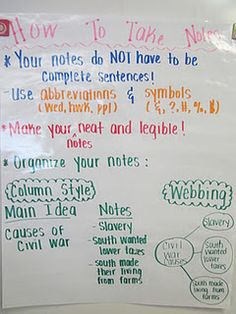 How To Take Notes
* Your notes do NOT have to be
complete sentences!
- Use abbreviations & symbols
(wed, hwk, ppl) (&, ?, #, %, $)
* Make your notes neat and legible!
* Organize your notes :
Column Style
Main Idea Notes
Causes of
Civil War
- Slavery
- south wanted
lower taxes
- south made
their living
from farms
Webbing
Civil
War
Causes
Slavery
South wanted
lower taxes
South made
living from
farms